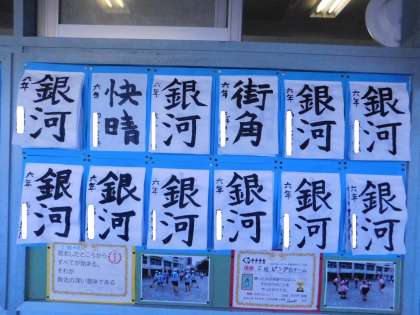 銀河
六年
快晴
六年
銀河
六年
街角
六年
銀河
六年
銀河
六年
銀河
六年
銀河
六年
銀河
六年
銀河
六年
銀河
六年
銀河
六年
敗北したところから
すべてが始まる。
それが
敗北の深い意味である